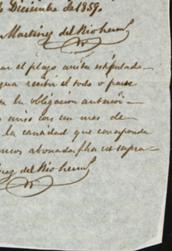 Diciembre de 1859.
Martinez del Rio herm
ar el plazo arriba estipulado
recibir el todo o parte
la obligacion anterior
aviso con un mes de
la cantidad que corresponda
abonada, fha ut supra
ez del Rio herm